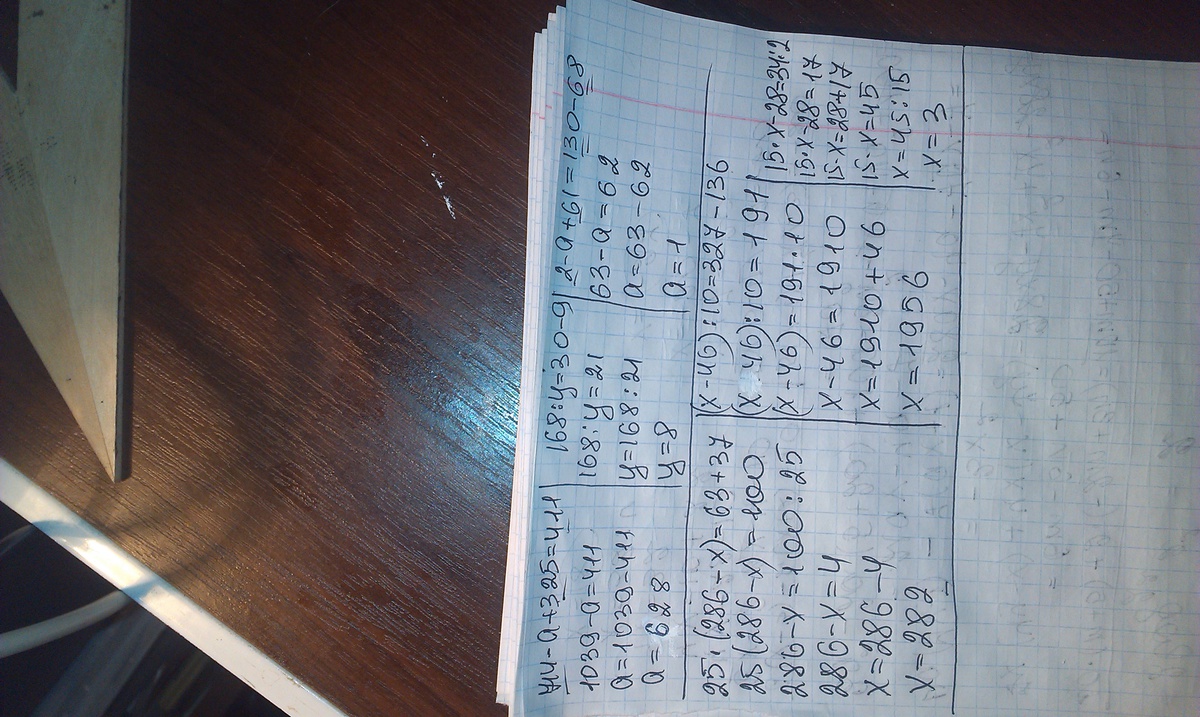 714-a+325=411
1039-a=411
a=1039-411
a=628
168:y=30-9
168:y=21
y=168:21
y=8
2-a+61=130-68
63-a=62
a=63-62
a=1
25·(286-x)=63+37
25(286-x)=100
286-x=100:25
286-x=4
x=286-4
x=282
(x-46):10=327-136
(x 46):10=191
(x-46)=191·10
x-46=1910
x=1910+46
x=1956
15·x-28=34:2
15·x-28=17
15·x=28+17
15·x=45
x=45:15
x=3